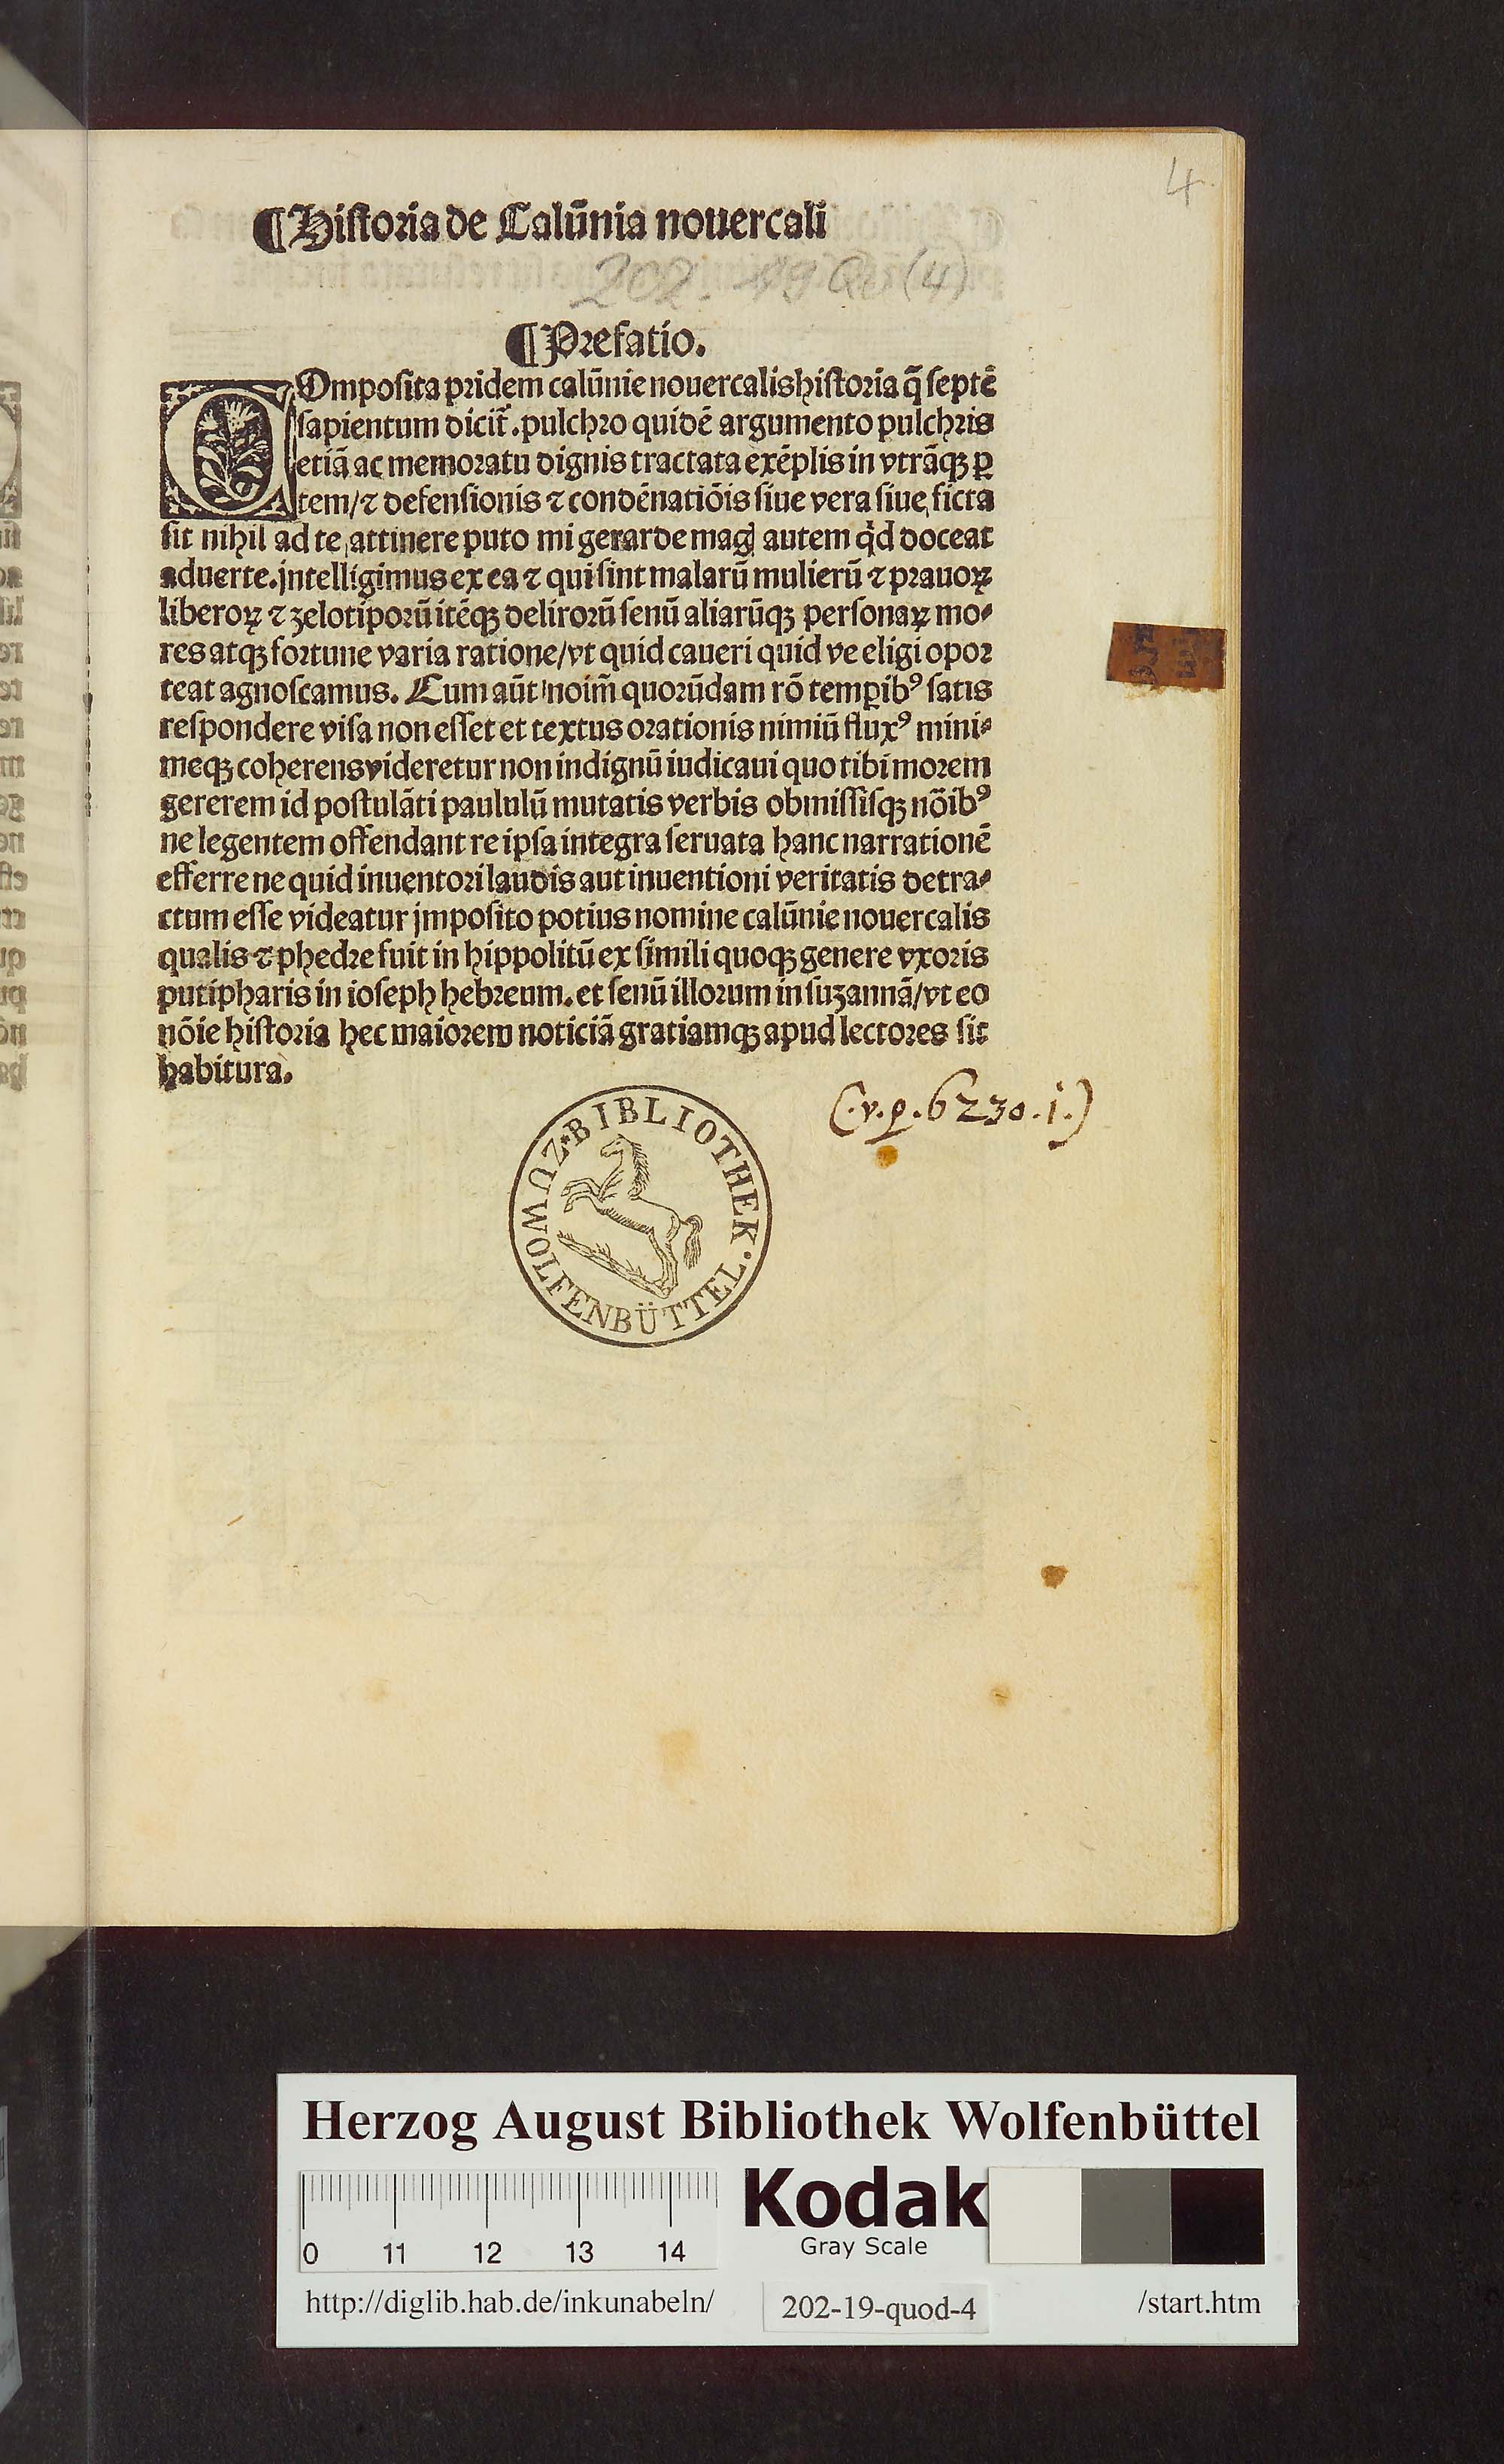 4
¶Hiſtoria de Calūnia nouercali
202. 19 Qu (4)
¶Prefatio.
COmpoſita pridem calūnie nouercalis hiſtoria q̄ ſeptē
ſapientum dicit̄. pulchro quidē argumento pulchris
etiā ac memoratu dignis tractata exēplis in vtrāqꝫ ꝑ
tem/⁊ defenſionis ⁊ condēnatiōis ſiue vera ſiue ficta
ſit nihil ad te attinere puto mi gerarde magꝭ autem qͥd doceat
aduerte. jntelligimus ex ea ⁊ qui ſint malarū mulierū ⁊ prauoꝝ
liberoꝝ ⁊ zelotiporū itēqꝫ delirorū ſenū aliarūqꝫ perſonaꝝ mo⸗
res atqꝫ fortune varia ratione/vt quid caueri quid ve eligi opor
teat agnoſcamus. Cum aūt noim̄ quorūdam rō temꝑibꝰ ſatis
reſpondere viſa non eſſet et textus orationis nimiū fluxꝰ mini⸗
meqꝫ coherens videretur non indignū iudicaui quo tibi morem
gererem id poſtulāti paululū mutatis verbis obmiſſiſqꝫ nōibꝰ
ne legentem offendant re ipſa integra ſeruata hanc narrationē
efferre ne quid inuentori laudis aut inuentioni veritatis detra⸗
ctum eſſe videatur jmpoſito potius nomine calūnie nouercalis
qualis ⁊ phedre fuit in hippolitū ex ſimili quoqꝫ genere vxoris
putipharis in ioſeph hebreum. et ſenū illorum in ſuzannā/vt eo
nōie hiſtoria hec maiorem noticiā gratiamqꝫ apud lectores ſit
habitura.
(.v.p. 6230.i.)
BIBLIOTHEK · WOLFENBÜTTEL ZU
Herzog August Bibliothek Wolfenbüttel
Kodak
Gray Scale
0 11 12 13 14
http://diglib.hab.de/inkunabeln/ 202-19-quod-4 /start.htm